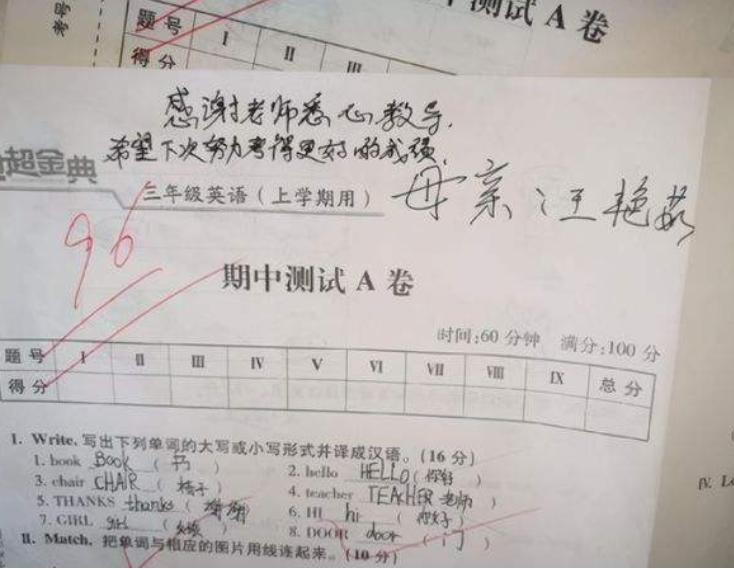 测试 A 卷
考号
题号 I II III
得分
感谢老师悉心教导.
希望下次努力考得更好的成绩.
超金典
三年级英语（上学期用） 母亲 汪艳茹
96
期中测试 A 卷
时间:60 分钟 满分:100 分
题号 I II III IV V VI VII VIII IX 总分
得分
I. Write. 写出下列单词的大写或小写形式并译成汉语。(16 分)
1. book Book (书) 2. hello HELLO (你好)
3. chair CHAIR (椅子) 4. teacher TEACHER 老师)
5. THANKS thanks (谢谢) 6. HI hi (你好)
7. GIRL girl (女孩) 8. DOOR door (门)
II. Match. 把单词与相应的图片用线连起来。(10 分)
IV.